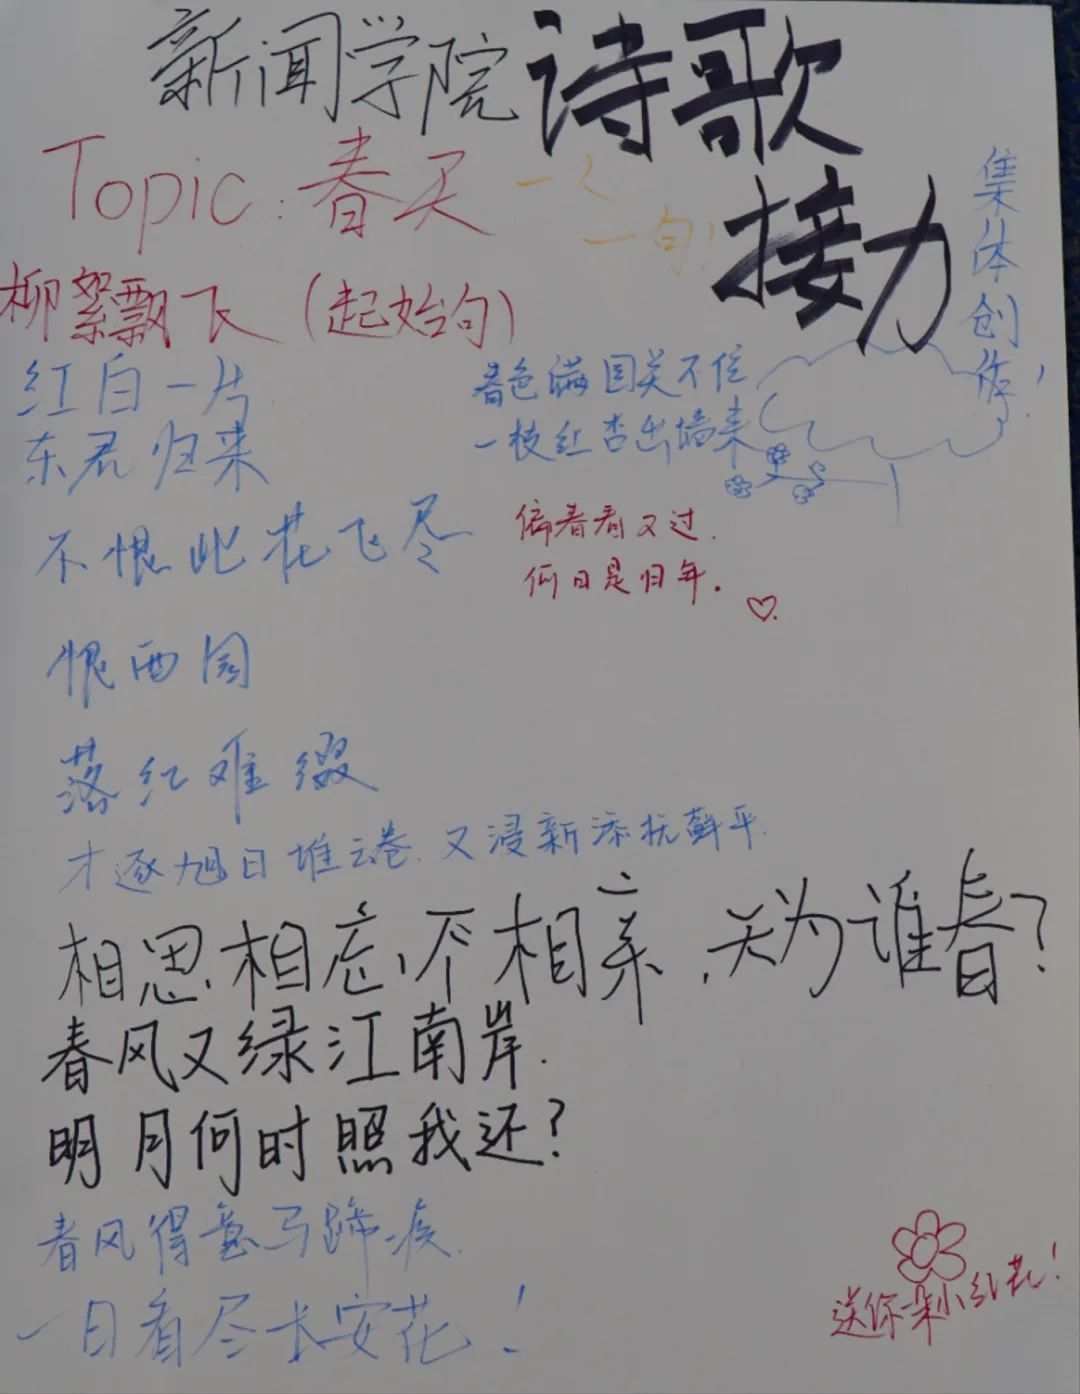 新闻学院诗歌
接力
集体创作!
Topic:春天
一人
一句!
柳絮飘飞(起始句)
红白一片
东君归来
春色满园关不住
一枝红杏出墙来
不恨此花飞尽
恨西园
落红难缀
偏春看又过.
何日是归年.
才逐旭日堆云卷.又浸新添抚藓平.
相思,相忘,不相亲,天为谁春?
春风又绿江南岸.
明月何时照我还?
春风得意马蹄疾.
一日看尽长安花!
送你一朵小红花!